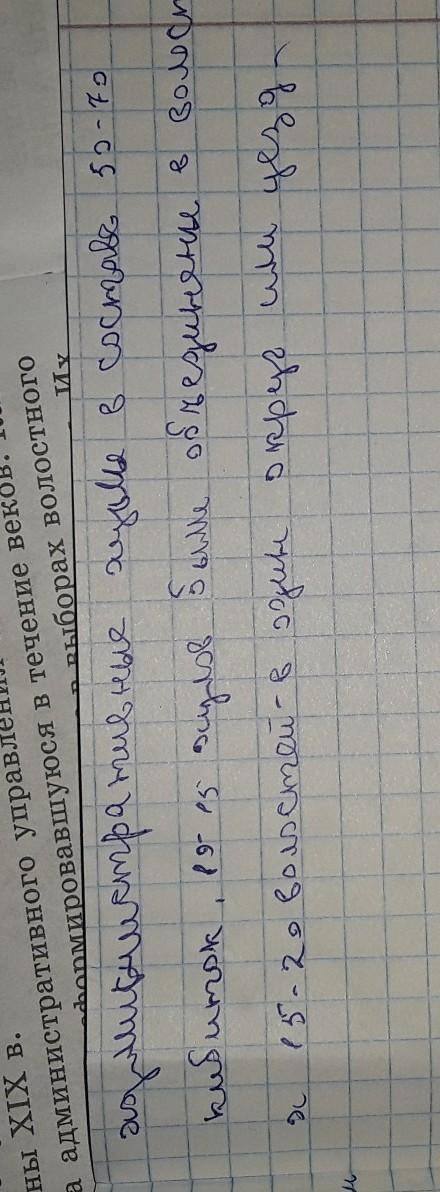 ны XIX в.
административного управления
а формировавшуюся в течение веков.
в выборах волостного
Их
административные аулы в составе 50-70
кибиток, 10-15 аулов были объединены в волост
а 15-20 волостей-в один округ или уезд